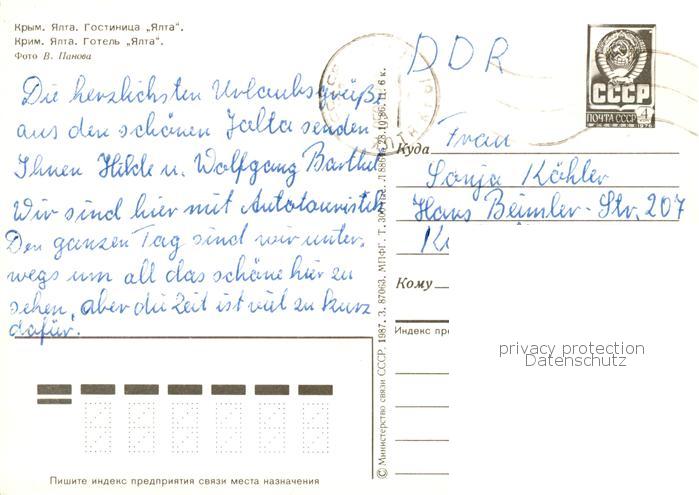 Крым. Ялта. Гостиница „Ялта".
Крим. Ялта. Готель „Ялта".
Фото В. Панова
Die herzlichsten Urlaubsgrüße
aus den schönen Jalta senden
Ihnen Hilde u. Wolfgang Barthel
Wir sind hier mit Autotouristik
Den ganzen Tag sind wir unter-
wegs um all das schöne hier zu
sehen, aber die Zeit ist viel zu kurz
dafür.
Пишите индекс предприятия связи места назначения
© Министерство связи СССР. 1987. З. 87063. МПФГ. Т. 28.10.86. Ц. 6 к.
DDR
СССР
ПОЧТА СССР 4
Куда
Frau
Sonja Köhler
Hans Beimler-Str. 207
Кому
Индекс пре
privacy protection
Datenschutz